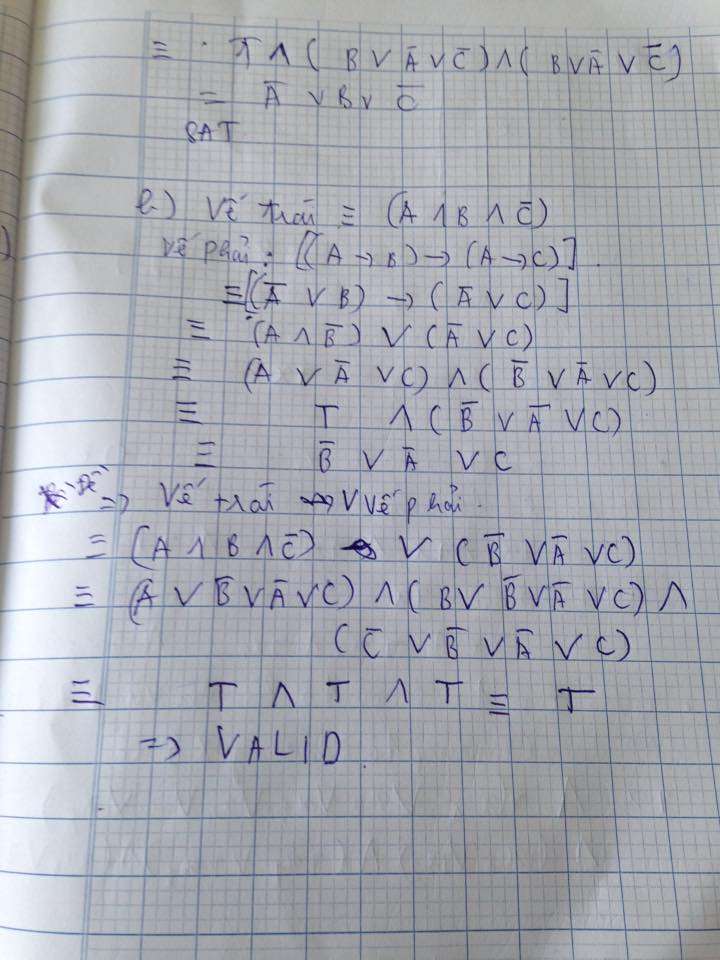 ≡ T ∧ ( B ∨ Ā ∨ C̄ ) ∧ ( B ∨ Ā ∨ C̄ )
= Ā ∨ B ∨ C̄
SAT
e.) Vế trái ≡ (A ∧ B ∧ C̄)
Vế phải: [(A → B) → (A → C)].
≡ [(Ā ∨ B) → (Ā ∨ C)]
≡ (A ∧ B̄) ∨ (Ā ∨ C)
≡ (A ∨ Ā ∨ C) ∧ ( B̄ ∨ Ā ∨ C)
≡ T ∧ ( B̄ ∨ Ā ∨ C)
≡ B̄ ∨ Ā ∨ C
=> Vế trái ∨ Vế phải.
≡ (A ∧ B ∧ C̄) ∨ ( B̄ ∨ Ā ∨ C)
≡ (A ∨ B̄ ∨ Ā ∨ C) ∧ ( B ∨ B̄ ∨ Ā ∨ C) ∧
( C̄ ∨ B̄ ∨ Ā ∨ C)
≡ T ∧ T ∧ T ≡ T
=> VALID.